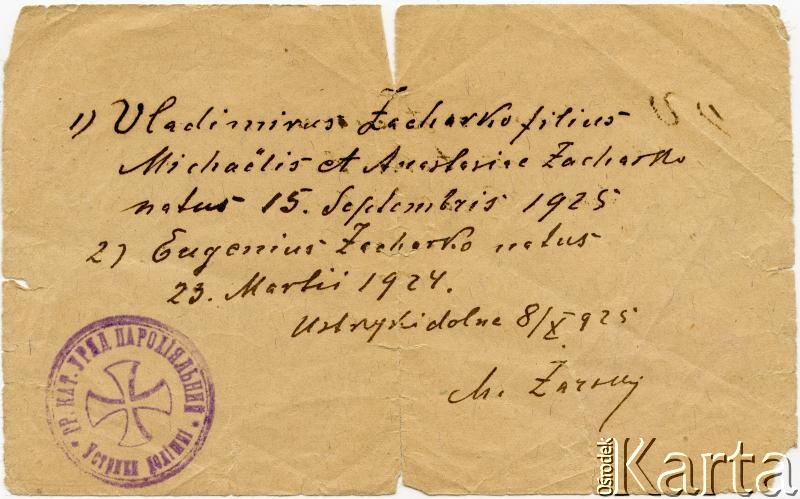 1) Vladimirus Zacharko filius
Michaëlis et Anastasiae Zacharko
natus 15. Septembris 1925
2) Eugenius Zacharko natus
23. Martii 1924.
Ustrykidolne 8/X 925
M. Żarskij
ГР. КАТ. УРЯД ПАРОХІЯЛЬНИЙ
Устрики долішні
Ośrodek
Karta